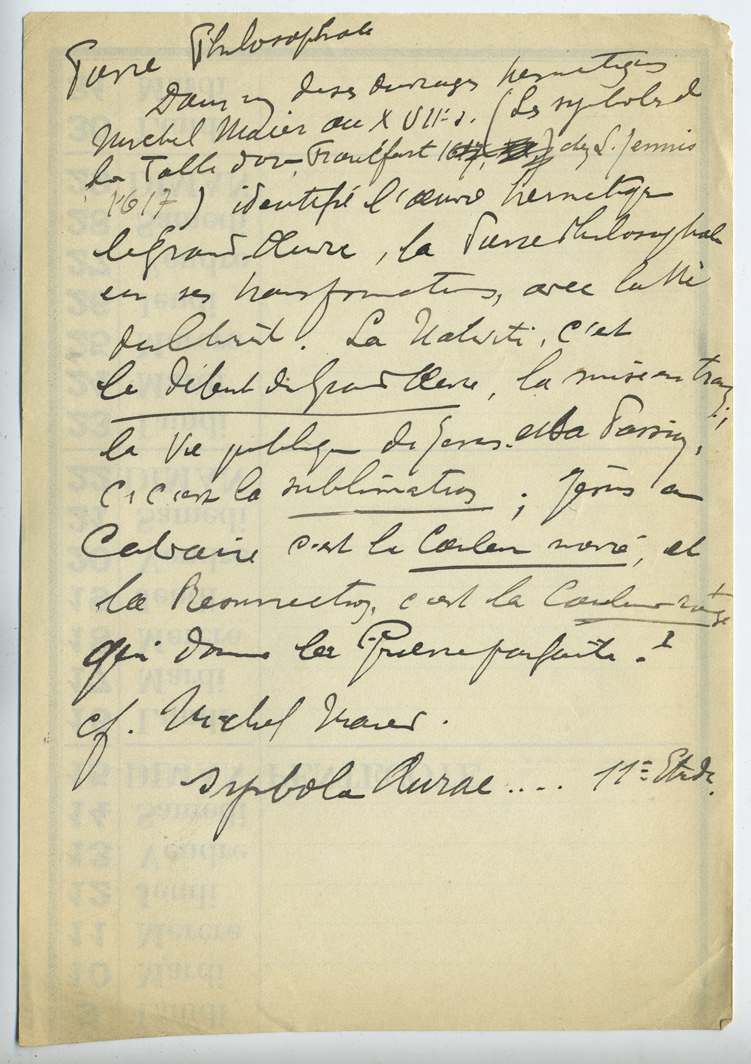 Pierre Philosophale
Dans un de ses ouvrages hermétiques
Michel Maier au XVIIe s. (Les symboles de
la Table d'or, Francfort chez L. Jennis
1617) identifie l'œuvre hermétique
le grand Œuvre, la Pierre Philosophale
en ses transformations, avec la Vie
du Christ. La Nativité, c'est
le début du Grand Œuvre, la mise en train;
la Vie publique de Jésus et la Passion,
c'est la sublimation; Jésus au
Calvaire c'est la Couleur noire, et
la Resurrection, c'est la Couleur rouge
qui donne la Pierre parfaite.
cf. Michel Maier.
Symbola Aurae.... 11e Etude.